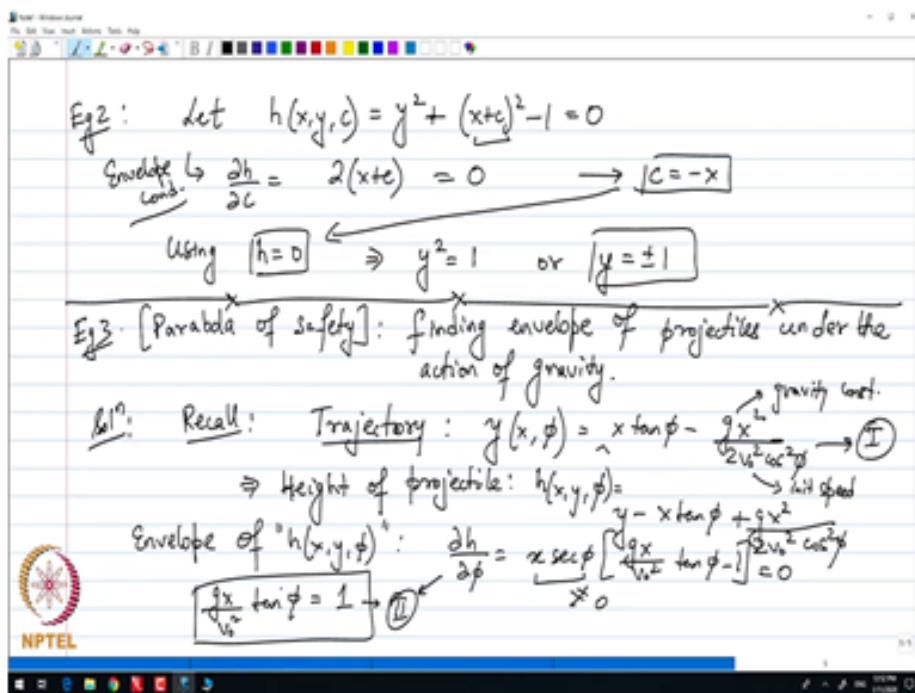 Note1 - Windows Journal
File Edit View Insert Actions Tools Help
Eg2: Let h(x,y,c) = y² + (x+c)² - 1 = 0
Envelope cond. ↳ ∂h/∂c = 2(x+c) = 0 → c = -x
Using h = 0 ⇒ y² = 1 or y = ± 1
Eg3. [Parabola of safety]: finding envelope of projectiles under the
action of gravity.
Solⁿ: Recall: Trajectory: y(x,φ) = x tanφ - gx²/2v₀²cos²φ → I
gravity const.
init speed
⇒ Height of projectile: h(x,y,φ) =
y - x tanφ + gx²/2v₀² cos²φ
Envelope of "h(x,y,φ)": ∂h/∂φ = x secφ [gx/v₀² tanφ - 1] = 0
≠ 0
gx/v₀² tanφ = 1 → II
NPTEL